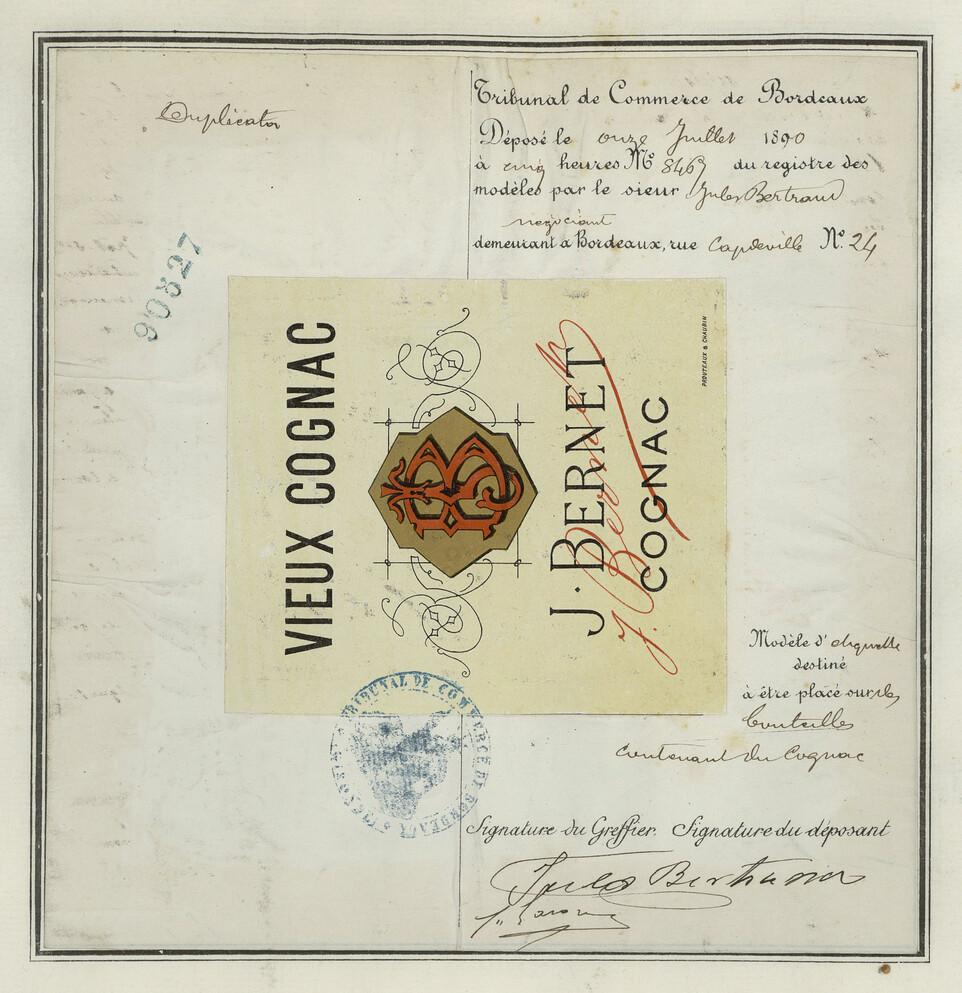 Duplicata
Tribunal de Commerce de Bordeaux
Déposé le onze Juillet 1890
à cinq heures No 8467 du registre des
modèles par le sieur Jules Bertrand
negociant
demeurant à Bordeaux, rue Capdeville No. 24
90827
VIEUX COGNAC
J. BERNET
COGNAC
J. Bernet
PROUTEAUX & CHAUBIN
Modèle d'etiquette
destiné
à être placé sur les
bouteilles
contenant du Cognac
TRIBUNAL DE COMMERCE DE BORDEAUX
Signature du Greffier. Signature du déposant
Jules Bertrand